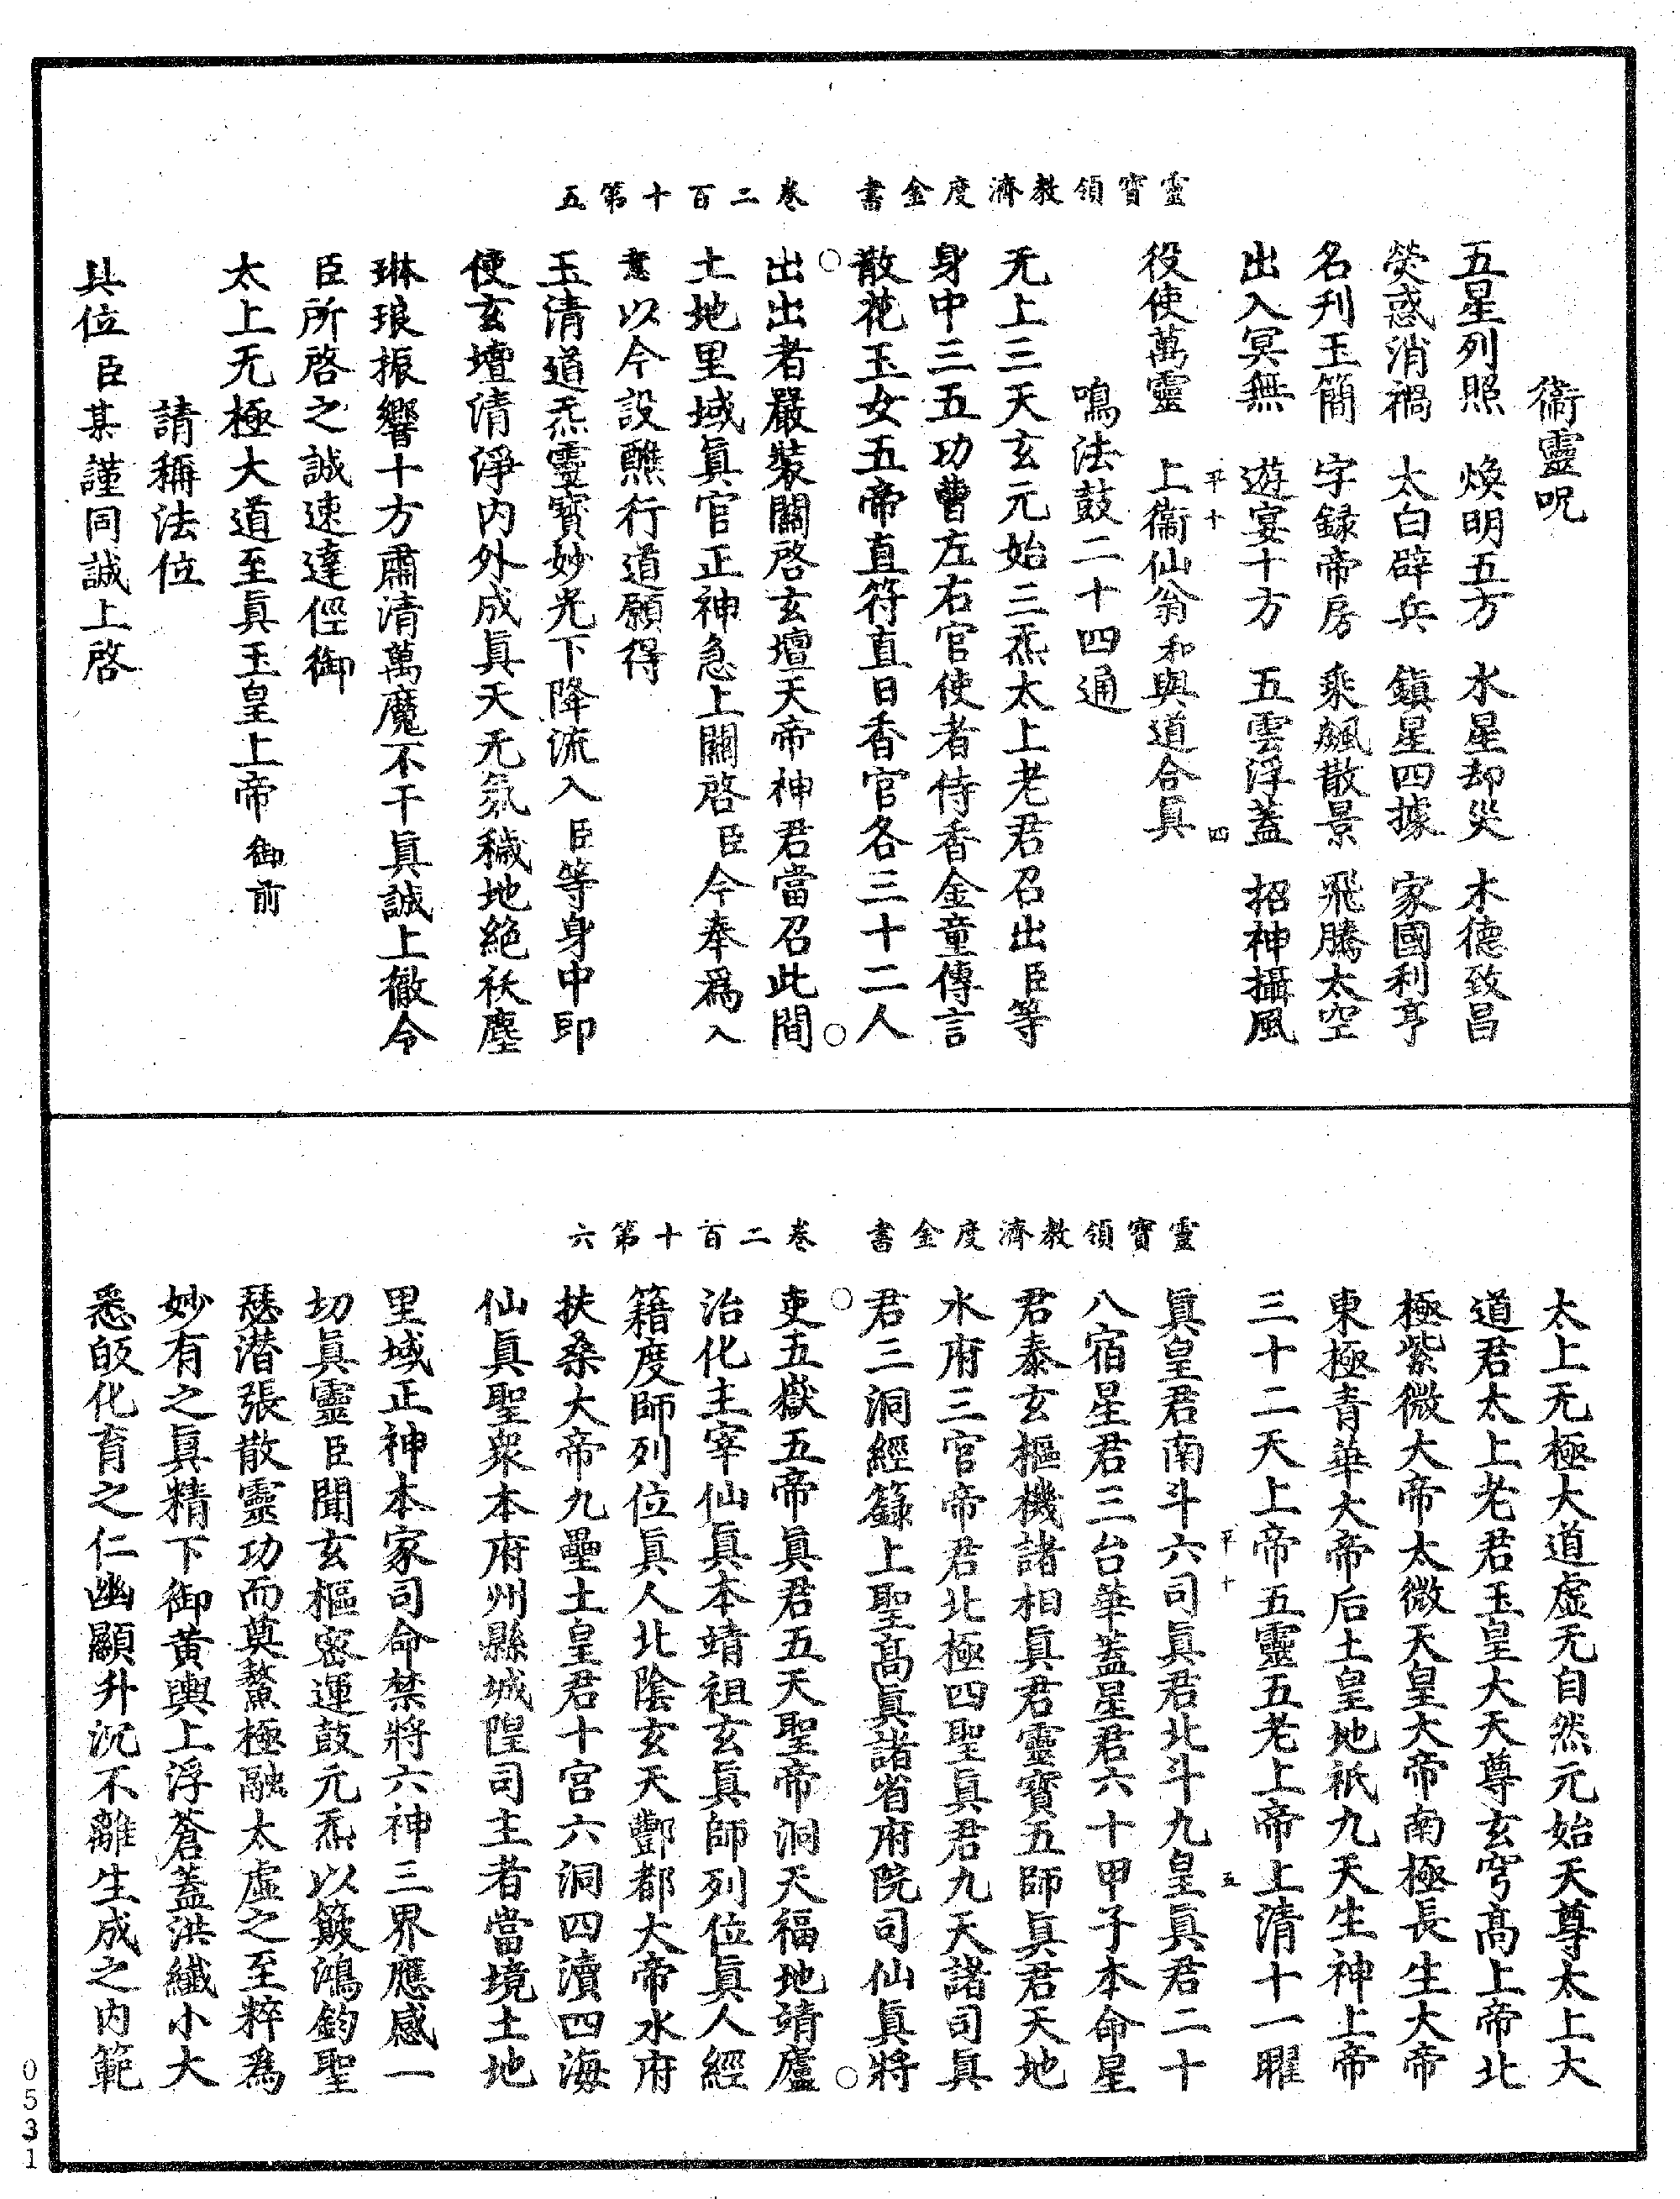 靈寶領教濟度金書　卷二百十第五
衞靈呪
五星列照　煥明五方　水星却災　木德致昌
熒惑消禍　太白辟兵　鎮星四據　家國利亨
名刋玉簡　字録帝房　乘飈散景　飛騰太空
出入冥無　遊宴十方　五雲浮蓋　招神攝風
平十　四
役使萬靈　上衞仙翁和與道合眞
鳴法鼓二十四通
无上三天玄元始三炁太上老君召出臣等
身中三五功曹左右官使者侍香金童傳言
散花玉女五帝直符直日香官各三十二人
出出者嚴裝關啓玄壇天帝神君當召此間
土地里域眞官正神急上關啓臣今奉爲入
意以今設醮行道願得
玉清道炁靈寶妙光下降流入臣等身中即
使玄壇清淨內外成眞天无氛穢地絕祅塵
琳琅振響十方肅清萬魔不干眞誠上徹令
臣所啓之誠速達徑御
太上无極大道至眞玉皇上帝御前
請稱法位
具位臣某謹同誠上啓
靈寶領教濟度金書　卷二百十第六
太上无極大道虛无自然元始天尊太上大
道君太上老君玉皇大天尊玄穹髙上帝北
極紫微大帝太微天皇大帝南極長生大帝
東極青華大帝后土皇地祇九天生神上帝
三十二天上帝五靈五老上帝上清十一曜
平十　五
眞皇君南斗六司眞君北斗九皇眞君二十
八宿星君三台華蓋星君六十甲子本命星
君泰玄樞機諸相眞君靈寶五師眞君天地
水府三官帝君北極四聖眞君九天諸司眞
君三洞經籙上聖髙眞諸省府院司仙眞將
吏五嶽五帝眞君五天聖帝洞天福地靖廬
治化主宰仙眞本靖祖玄眞師列位眞人經
籍度師列位眞人北陰玄天酆都大帝水府
扶桑大帝九壘土皇君十宮六洞四瀆四海
仙眞聖衆本府州縣城隍司主者當境土地
里域正神本家司命禁將六神三界應感一
切眞靈臣聞玄樞密運鼓元炁以簸鴻鈞聖
瑟潛張散靈功而奠鰲極融太虛之至粹爲
妙有之眞精下御黃輿上浮蒼蓋洪纖小大
悉皈化育之仁幽顯升沉不離生成之內範
0531